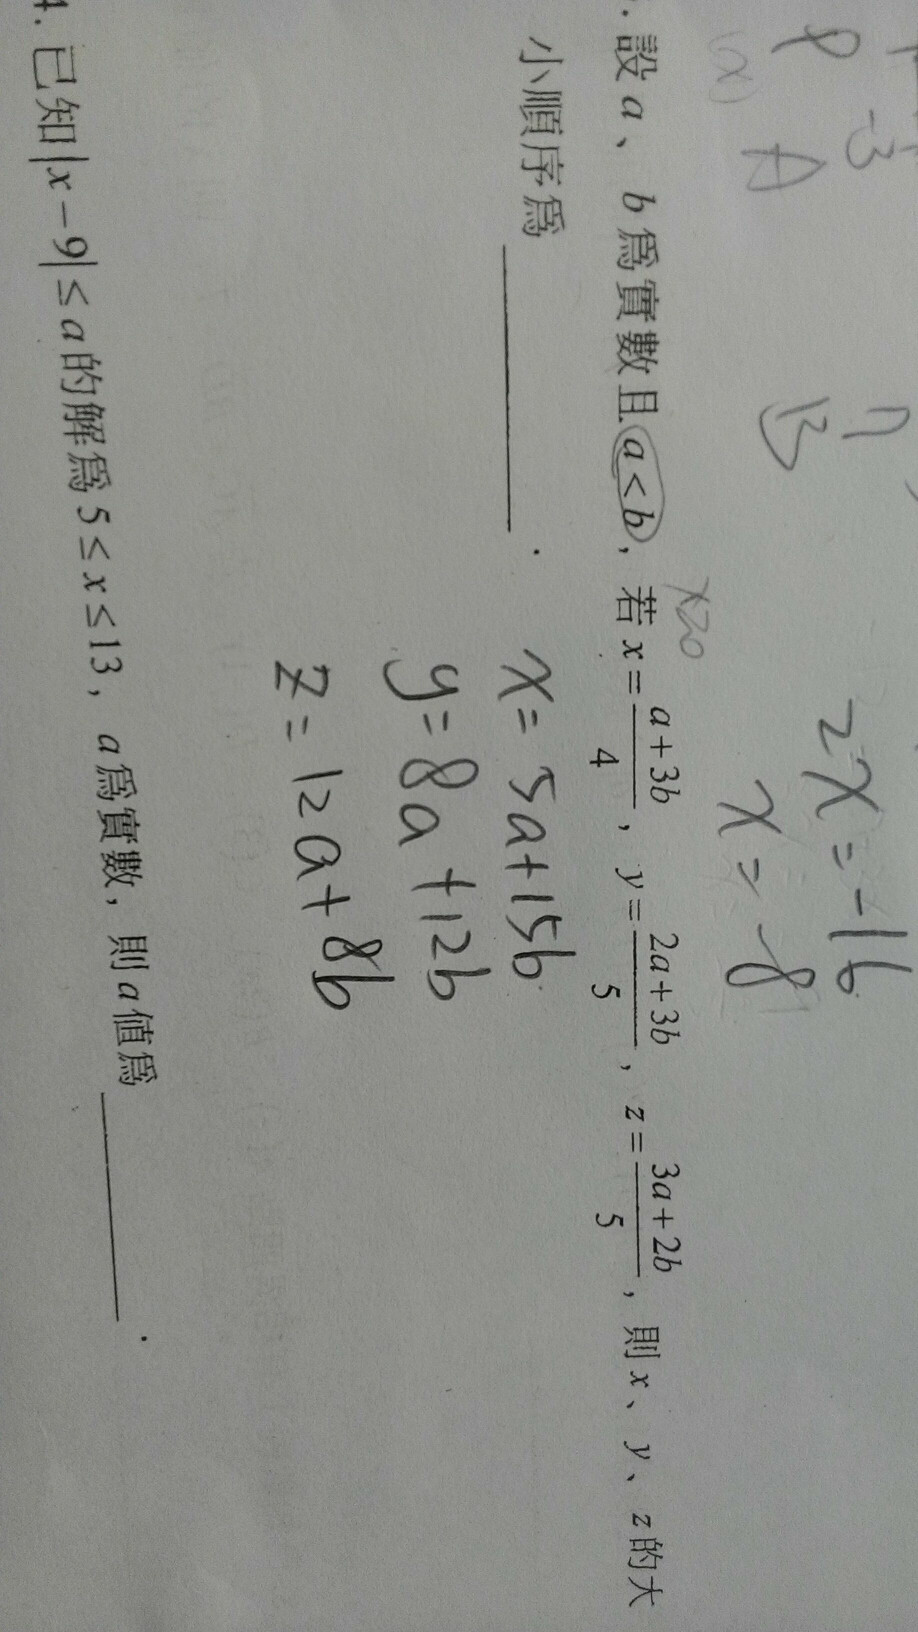 2x = -16
x = -8
-3
A
B
×20
.設 a、b 為實數且 a < b，若 x = \frac{a+3b}{4}，y = \frac{2a+3b}{5}，z = \frac{3a+2b}{5}，則 x、y、z 的大
小順序為＿＿＿＿＿．
x = 5a+15b
y = 8a+12b
z = 12a+8b
4. 已知|x－9| ≤ a 的解為 5 ≤ x ≤ 13，a 為實數，則 a 值為＿＿＿＿＿．